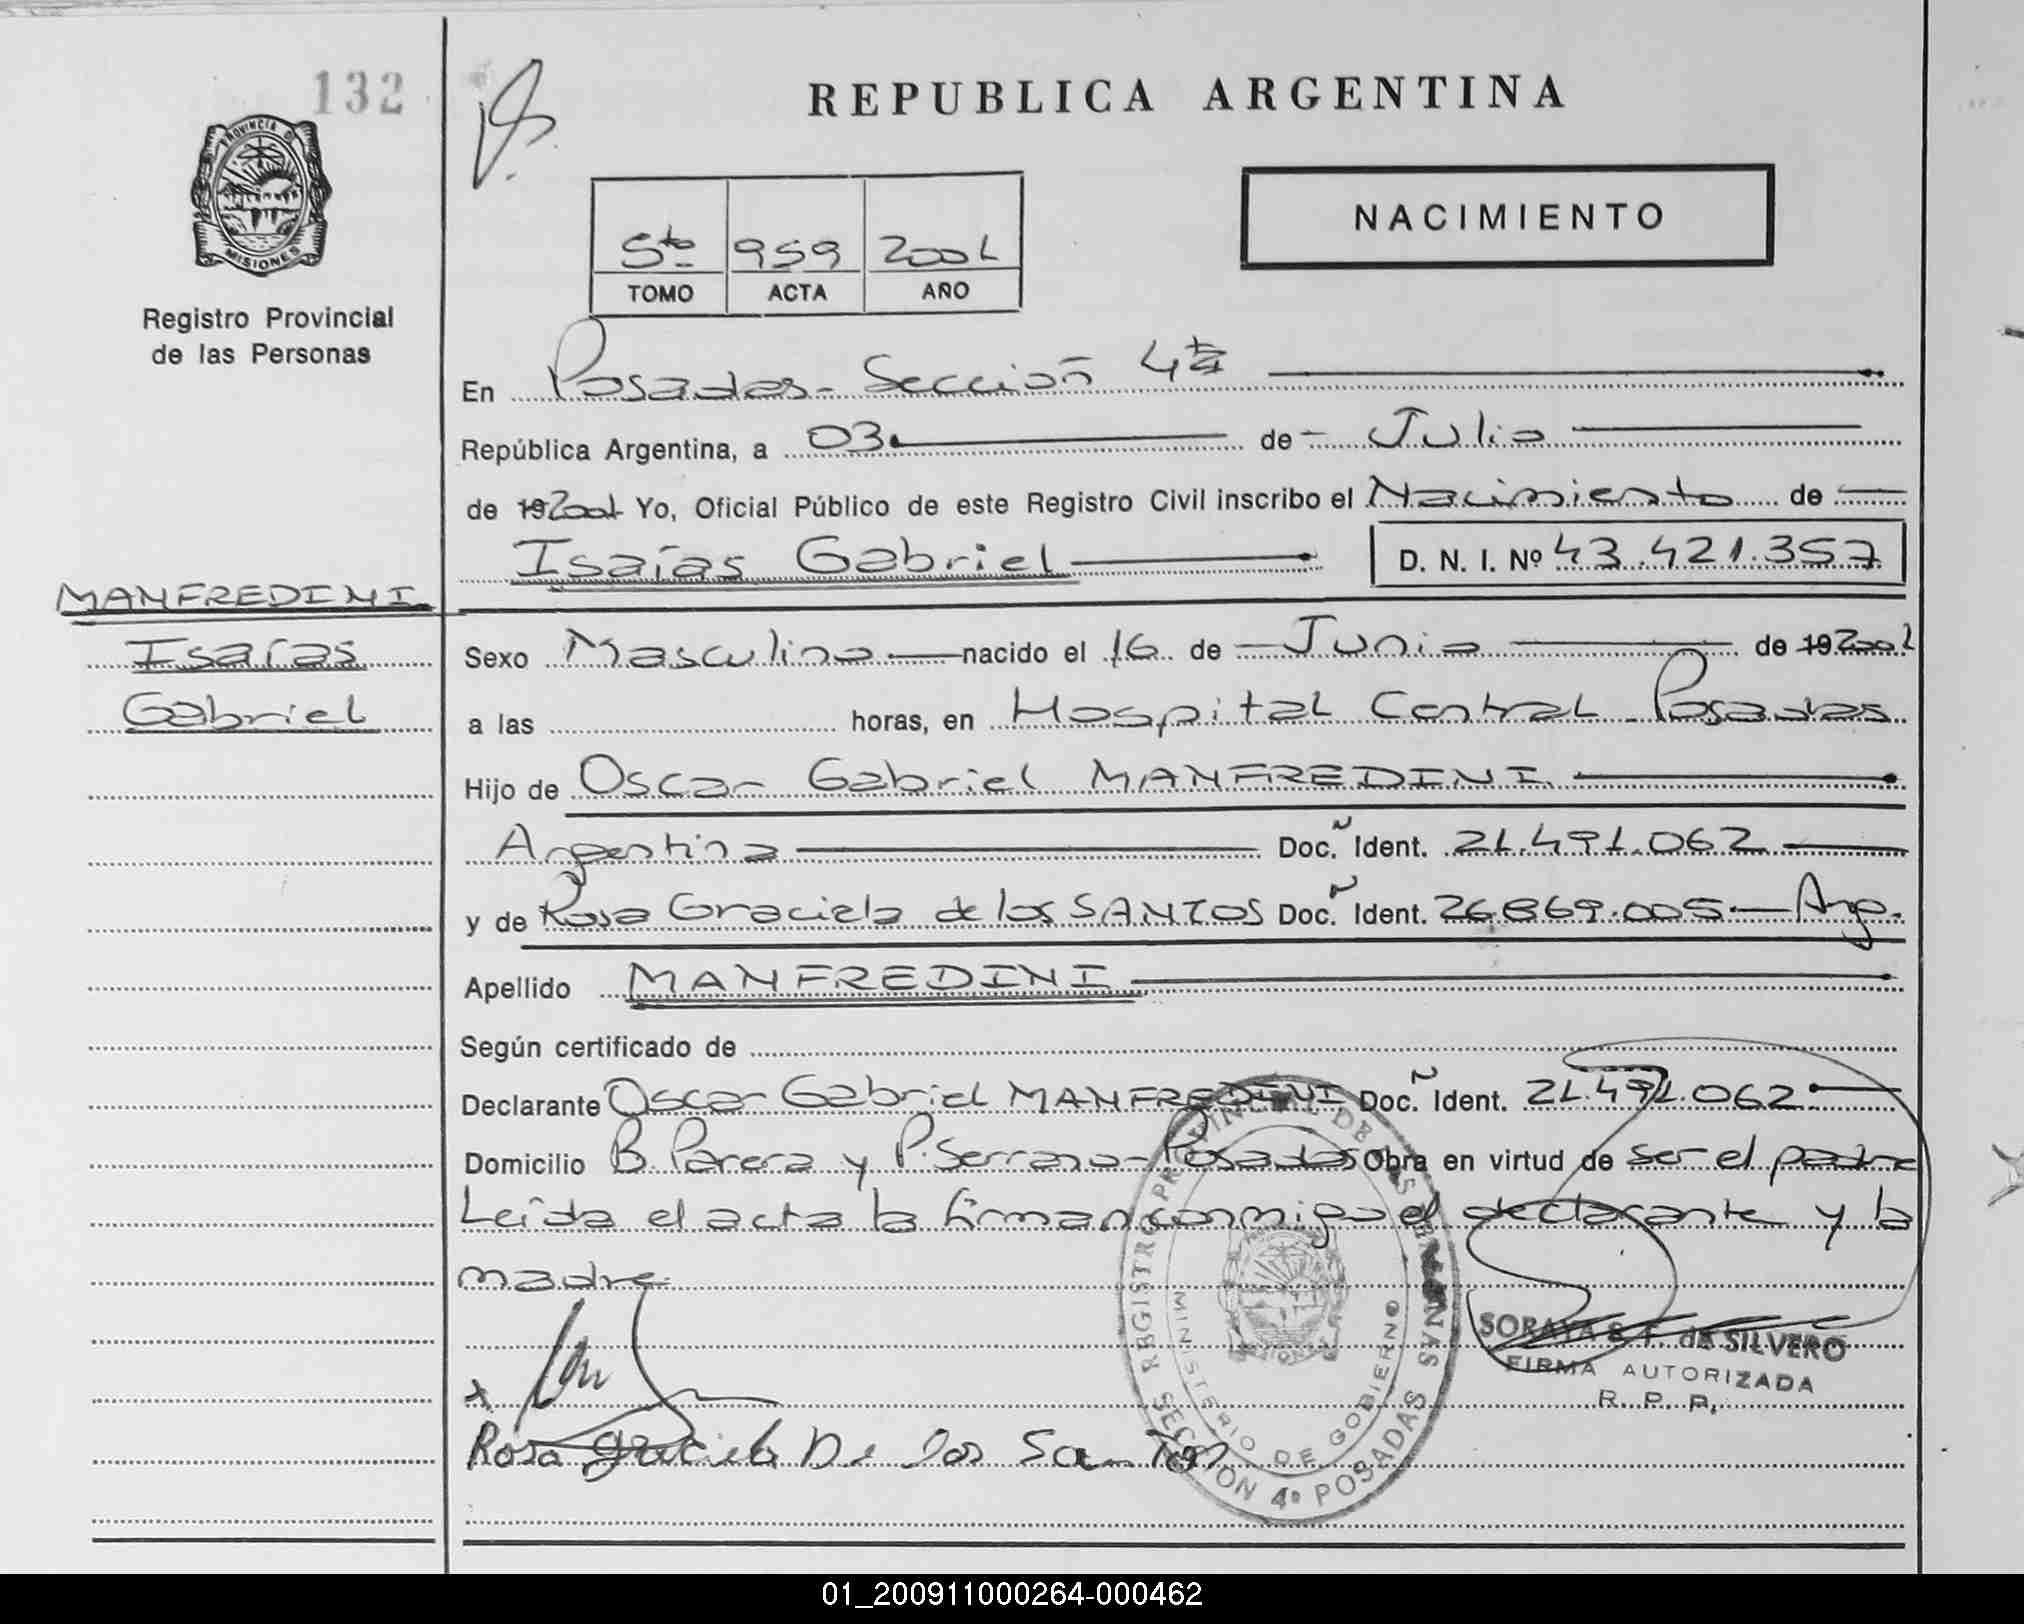 132
REPUBLICA ARGENTINA
PROVINCIA DE
MISIONES
Registro Provincial
de las Personas
5to 959 2001
TOMO ACTA AÑO
NACIMIENTO
En Posadas - Sección 4ta
República Argentina, a 03 de Julio
de 19 2001 Yo, Oficial Público de este Registro Civil inscribo el Nacimiento de
Isaías Gabriel D. N. I. Nº 43.421.357
MANFREDINI
Isaías
Gabriel
Sexo Masculino nacido el 16 de Junio de 19 2001
a las horas, en Hospital Central Posadas
Hijo de Oscar Gabriel MANFREDINI
Argentina Doc. Ident. 21.491.062
y de Rosa Graciela de los SANTOS Doc. Ident. 26.869.005 - Arg.
Apellido MANFREDINI
Según certificado de
Declarante Oscar Gabriel MANFREDINI Doc. Ident. 21.491.062
Domicilio B. Parera y P. Serrano - Posadas Obra en virtud de ser el padre
Leída el acta la firman conmigo el declarante y la
madre
REGISTRO PROVINCIAL DE LAS PERSONAS
MINISTERIO DE GOBIERNO
SECCION 4º POSADAS
SORAYA E. F. de SILVERO
FIRMA AUTORIZADA
R. P. P.
Rosa Graciela De los Santos
01_200911000264-000462